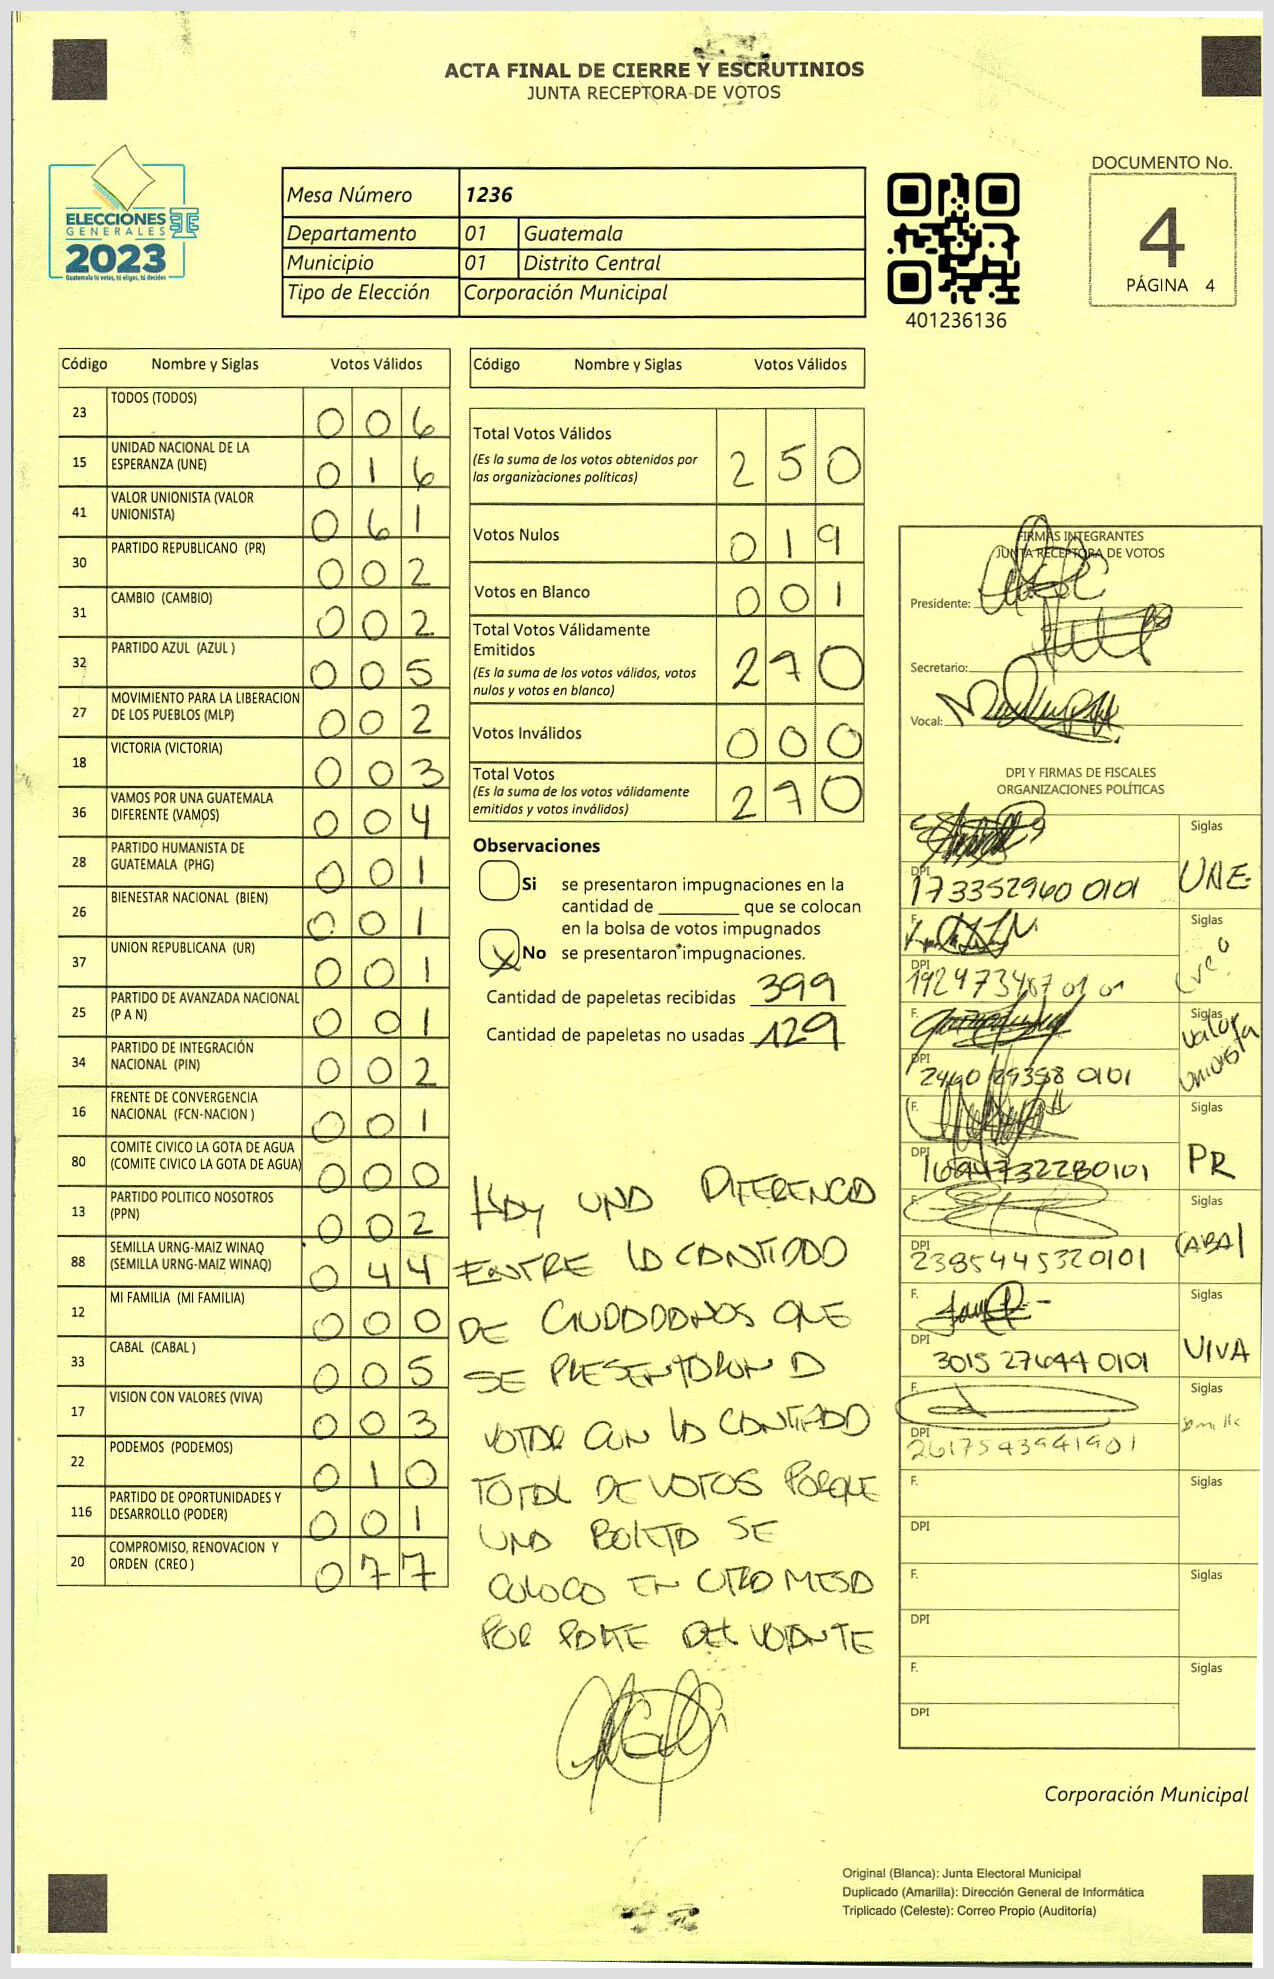 ACTA FINAL DE CIERRE Y ESCRUTINIOS
JUNTA RECEPTORA DE VOTOS
ELECCIONES
GENERALES
2023
Guatemala tú votas, tú eliges, tú decides
Mesa Número 1236
Departamento 01 Guatemala
Municipio 01 Distrito Central
Tipo de Elección Corporación Municipal
401236136
DOCUMENTO No.
4
PÁGINA 4
Código Nombre y Siglas Votos Válidos
23 TODOS (TODOS) 0 0 6
15 UNIDAD NACIONAL DE LA
ESPERANZA (UNE) 0 1 6
41 VALOR UNIONISTA (VALOR
UNIONISTA) 0 6 1
30 PARTIDO REPUBLICANO (PR) 0 0 2
31 CAMBIO (CAMBIO) 0 0 2
32 PARTIDO AZUL (AZUL ) 0 0 5
27 MOVIMIENTO PARA LA LIBERACION
DE LOS PUEBLOS (MLP) 0 0 2
18 VICTORIA (VICTORIA) 0 0 3
36 VAMOS POR UNA GUATEMALA
DIFERENTE (VAMOS) 0 0 4
28 PARTIDO HUMANISTA DE
GUATEMALA (PHG) 0 0 1
26 BIENESTAR NACIONAL (BIEN) 0 0 1
37 UNION REPUBLICANA (UR) 0 0 1
25 PARTIDO DE AVANZADA NACIONAL
(P A N) 0 0 1
34 PARTIDO DE INTEGRACIÓN
NACIONAL (PIN) 0 0 2
16 FRENTE DE CONVERGENCIA
NACIONAL (FCN-NACION ) 0 0 1
80 COMITE CIVICO LA GOTA DE AGUA
(COMITE CIVICO LA GOTA DE AGUA) 0 0 0
13 PARTIDO POLITICO NOSOTROS
(PPN) 0 0 2
88 SEMILLA URNG-MAIZ WINAQ
(SEMILLA URNG-MAIZ WINAQ) 0 4 4
12 MI FAMILIA (MI FAMILIA) 0 0 0
33 CABAL (CABAL ) 0 0 5
17 VISION CON VALORES (VIVA) 0 0 3
22 PODEMOS (PODEMOS) 0 1 0
116 PARTIDO DE OPORTUNIDADES Y
DESARROLLO (PODER) 0 0 1
20 COMPROMISO, RENOVACION Y
ORDEN (CREO ) 0 7 7
Código Nombre y Siglas Votos Válidos
Total Votos Válidos 2 5 0
(Es la suma de los votos obtenidos por
las organizaciones políticas)
Votos Nulos 0 1 9
Votos en Blanco 0 0 1
Total Votos Válidamente
Emitidos 2 7 0
(Es la suma de los votos válidos, votos
nulos y votos en blanco)
Votos Inválidos 0 0 0
Total Votos 2 7 0
(Es la suma de los votos válidamente
emitidos y votos inválidos)
Observaciones
Si se presentaron impugnaciones en la
cantidad de ________ que se colocan
en la bolsa de votos impugnados
X No se presentaron impugnaciones.
Cantidad de papeletas recibidas 399
Cantidad de papeletas no usadas 129
HAY UNA DIFERENCIA
ENTRE LA CANTIDAD
DE CIUDADANOS QUE
SE PRESENTARON A
VOTAR CON LA CANTIDAD
TOTAL DE VOTOS PORQUE
UNA BOLETA SE
COLOCO EN OTRA MESA
POR PARTE DEL VOTANTE
FIRMAS INTEGRANTES
JUNTA RECEPTORA DE VOTOS
Presidente:
Secretario:
Vocal:
DPI Y FIRMAS DE FISCALES
ORGANIZACIONES POLÍTICAS
F. Siglas
DPI 173352960 0101 UNE
F. Siglas
DPI 192473467 01 01 Creo
F. Siglas
Valor
Unionista
DPI 2460 29358 0101
F. Siglas
DPI 1684732280101 PR
F. Siglas
DPI 2385445320101 CABAL
F. Siglas
DPI 3015 27644 0101 VIVA
F. Siglas
DPI 2617543941901 Semilla
F. Siglas
DPI
F. Siglas
DPI
F. Siglas
DPI
Corporación Municipal
Original (Blanca): Junta Electoral Municipal
Duplicado (Amarilla): Dirección General de Informática
Triplicado (Celeste): Correo Propio (Auditoría)